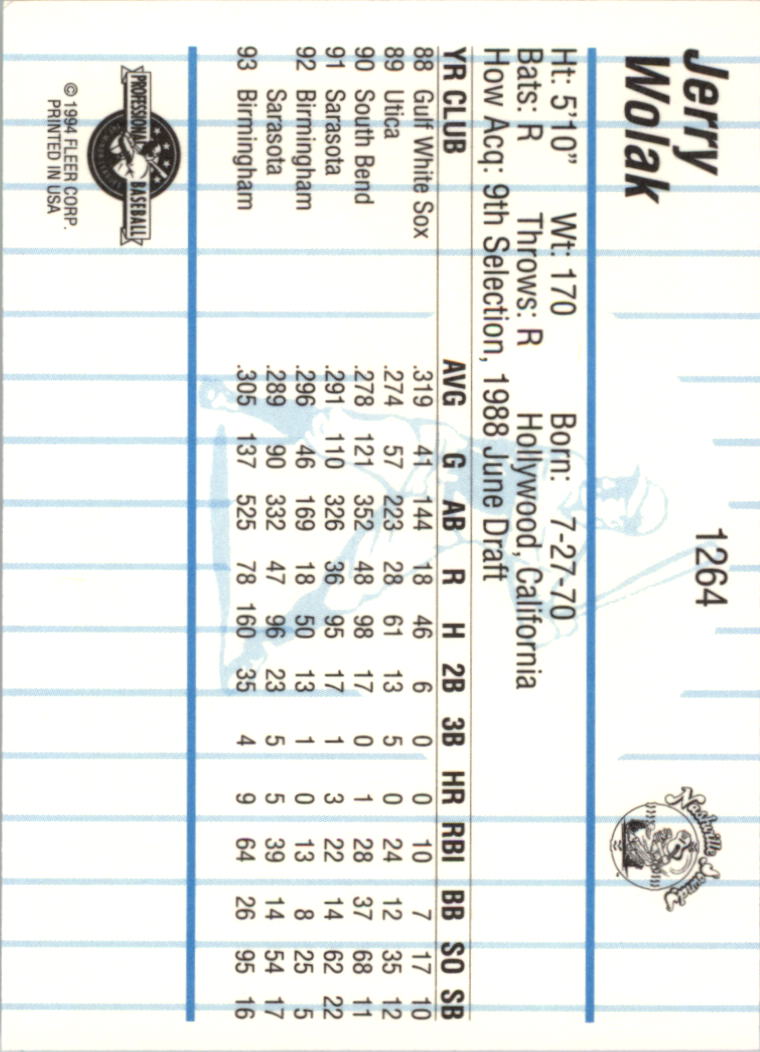 Jerry
Wolak
1264
Nashville Sounds
Ht: 5'10" Wt: 170 Born: 7-27-70
Bats: R Throws: R Hollywood, California
How Acq: 9th Selection, 1988 June Draft
YR CLUB AVG G AB R H 2B 3B HR RBI BB SO SB
88 Gulf White Sox .319 41 144 18 46 6 0 0 10 7 17 10
89 Utica .274 57 223 28 61 13 5 0 24 12 35 12
90 South Bend .278 121 352 48 98 17 0 1 28 37 68 11
91 Sarasota .291 110 326 36 95 17 1 3 22 14 62 22
92 Birmingham .296 46 169 18 50 13 1 0 13 8 25 5
Sarasota .289 90 332 47 96 23 5 5 39 14 54 17
93 Birmingham .305 137 525 78 160 35 4 9 64 26 95 16
PROFESSIONAL BASEBALL
© 1994 FLEER CORP.
PRINTED IN USA